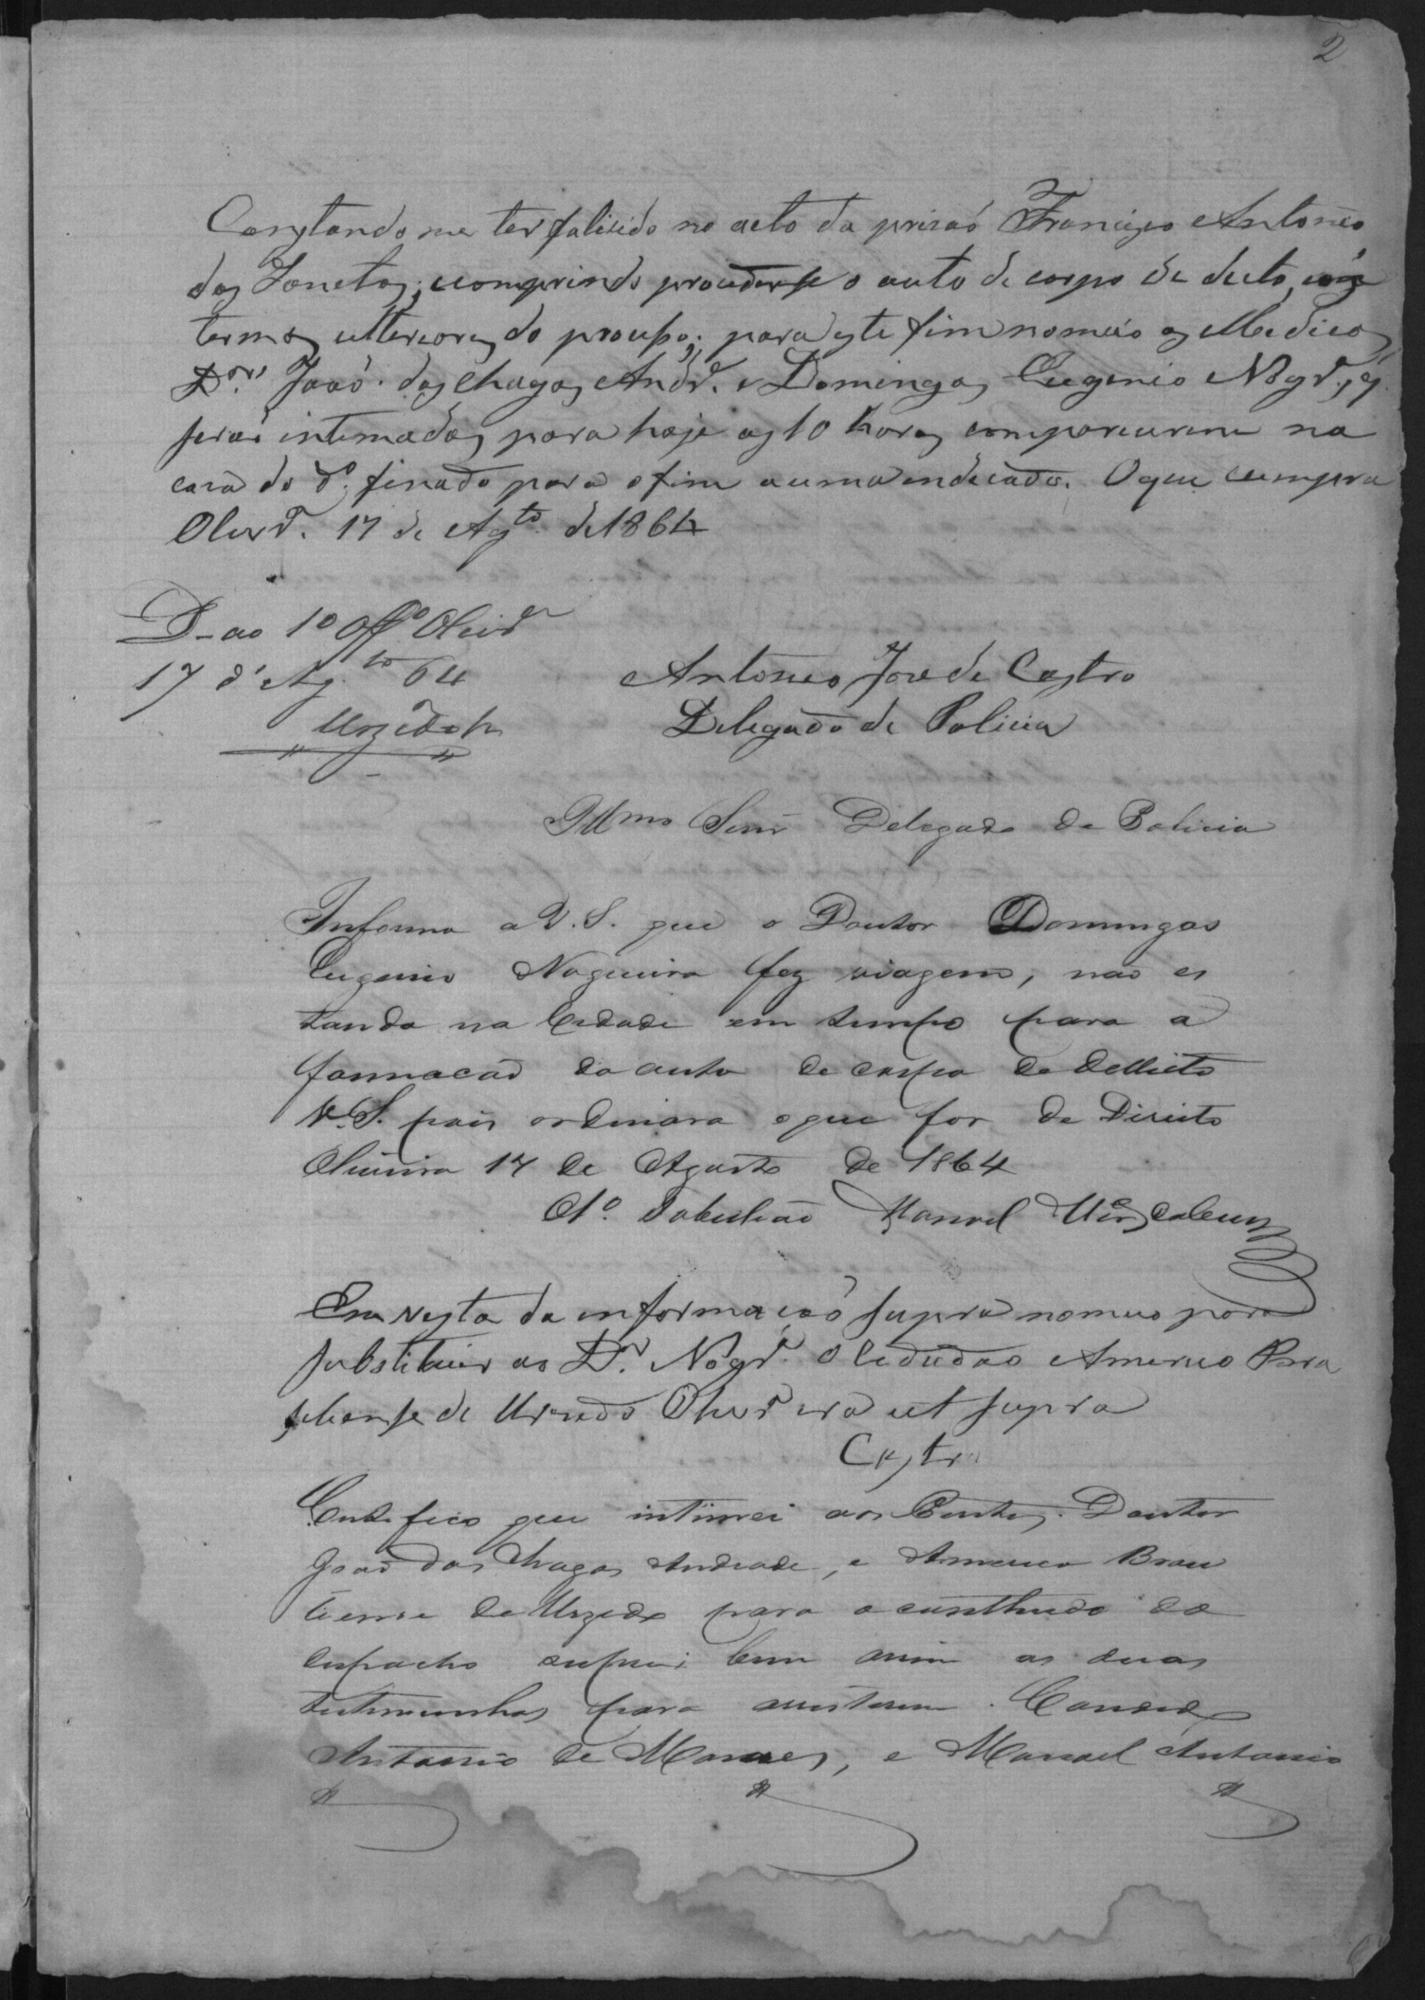 2
Constando me ter falicido no acto da prisaó Francisco Antonio
dos Santos, comprindo proceder se o auto de corpo de delicto, e os
termos ulteriores do processo; para este fim nomeio os Medicos
Dres João das Chagas Andr.e e Domingos Eugenio Nogr.a, q
seraó intimados para hoje as 10 horas comparecerem na
casa do d.o finado para o fim acima indicado. O que cumpra
Oliv.ra 17 de Ag.to de 1864
D. ao 1o Offo Olivra
17 d' Ag.to 64
Antonio José de Castro
Delegado de Policia
Illmo Senr Delegado de Policia
Informo a V. S. que o Doutor Domingos
Eugenio Nogueira fez viagem, não es
tando na Cidade em tempo para a
formacaõ do auto de corpo de dellicto
V. S. pois ordinara o que for de Direito
Oliveira 17 de Agosto de 1864
O 1o. Tabeliaõ Manoel
Em vista da informaçaó supra nomeio para
substituir ao Dr. Nogr.a o Cidadão Americo Bra
siliense de Urzedo Oliv.ra era ut supra
Castro
Certifico que intimei aos Peritos. Doutor
Joaõ das Chagas Andrade, e Americo Brasi
liense de Urzedo para o conthudo do
despacho supra; bem assim as duas
testimunhas para assistirem. Candido
Antonio de Moraes, e Manoel Antonio